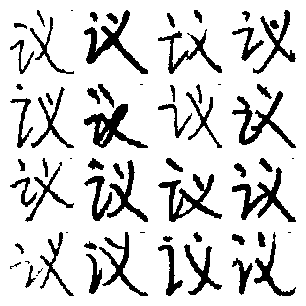 议议议议
议议议议
议议议议
议议议议